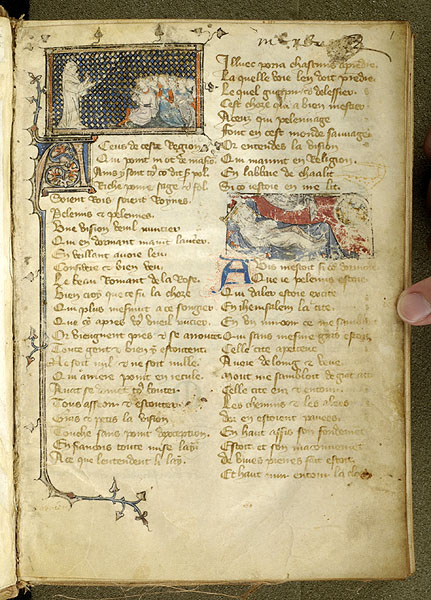 A Ceus de ceste Region
Qui point not de maison
Ains y sont co dit s pol
Riche povre sage et fol
Soient Rois soient Roynes
Pelerins et pelerines
Une vision veul nuncier
Qui en dormant mavint lautrier
En veillant avoie leu
Considere et bien veu
Le beau Romant de la Rose
Bien croy que ce fu la chose
Qui plus mesmut a ce songer
Que ci apres vo vueil nucier
Or viengnent pres et se arouter
Toute gent et bien escoutent
Ne soit nul et ne soit nulle
Qui arriere point en recule
Avant se touter
Tous asseoir et escouter
Grans et petis la vision
Touche sans point dexception
En francois toute mise lay
A ce que lentendent li lay
Illuec porra chascuns aprendre
La quelle voie len doit prendre
Le quel guerpir et delessier
Cest chose qui a bien mestier
A ceuz qui pelerinage
Font en cest monde sauvage
Or entendes la vision
Qui mavint en Religion
En labbaie de chaalit
Si com jestoie en me lit
Avis mestoit si com dormoie
Que je pelerins estoie
Qui daler estoie excite
En iherusalem la cite
En un miroir ce me sembloit
Qui sans mesure grans estoit
Celle cite aparceue
Avoie de loing et veue
Moult me sembloit de grant atour
Celle cite ens et entour
Les chemins et les alees
dor en estoient pavees
En haut assis son fondement
Estoit et son maconnement
de vives pierres fait estoit
Et haut mur entour la clooit